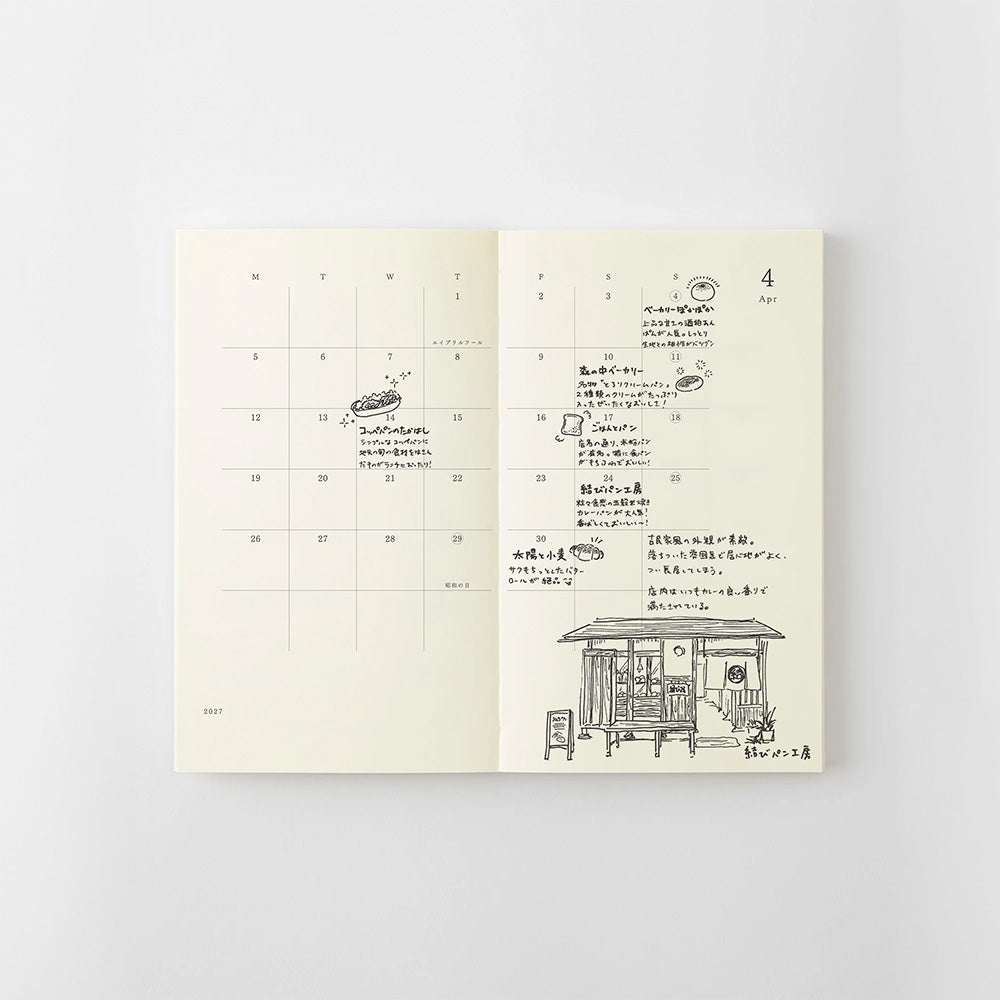 M T W T F S S
4
Apr
1 2 3 4
ベーカリーぽかぽか
上品な甘さの酒粕あん
ぱんが人気。しっとり
生地との相性がバツグン
エイプリルフール
5 6 7 8 9 10 11
森の中ベーカリー
名物「とろりクリームパン」
2種類のクリームがたっぷり
入ったぜいたくなおいしさ!
12 13 14 15 16 17 18
コッペパンのたかはし
シンプルなコッペパンに
地元の旬の食材をはさん
だものがランチにぴったり!
ごはんとパン
店名の通り、米粉パン
が有名。特に食パン
がもちふわでおいしい!
19 20 21 22 23 24 25
結びパン工房
粒々食感の五穀米焼き
カレーパンが大人気!
香ばしくておいしい〜!
26 27 28 29 30
昭和の日
太陽と小麦
サクもちっとしたバター
ロールが絶品
古民家風の外観が素敵。
落ちついた雰囲気で居心地がよく、
つい長居してしまう。
店内はいつもカレーの良い香りで
満たされている。
2027
結びパン工房